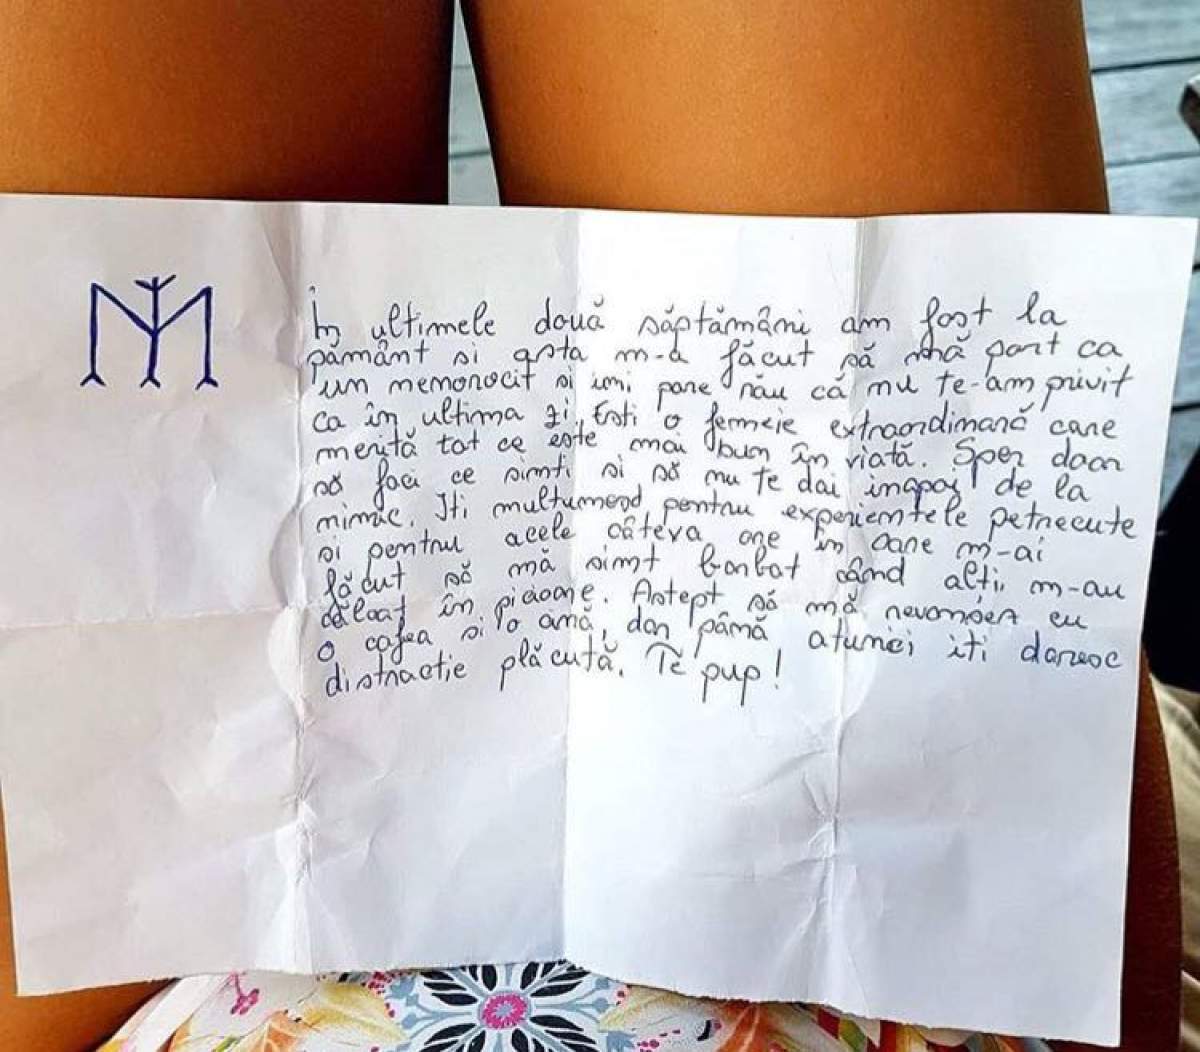 În ultimele două săptămâni am fost la
pământ si asta m-a făcut să mă port ca
un nenorocit si imi pare rău că nu te-am privit
ca în ultima zi. Esti o femeie extraordinară care
merită tot ce este mai bun în viată. Sper doar
să faci ce simti si să nu te dai inapoi de la
nimic. Iti multumesc pentru experientele petrecute
si pentru acele câteva ore în care m-ai
făcut să mă simt barbat când altii m-au
călcat în picioare. Astept să mă revansez cu
o cafea si o amă, dar până atunci iti doresc
distractie plăcută. Te pup!